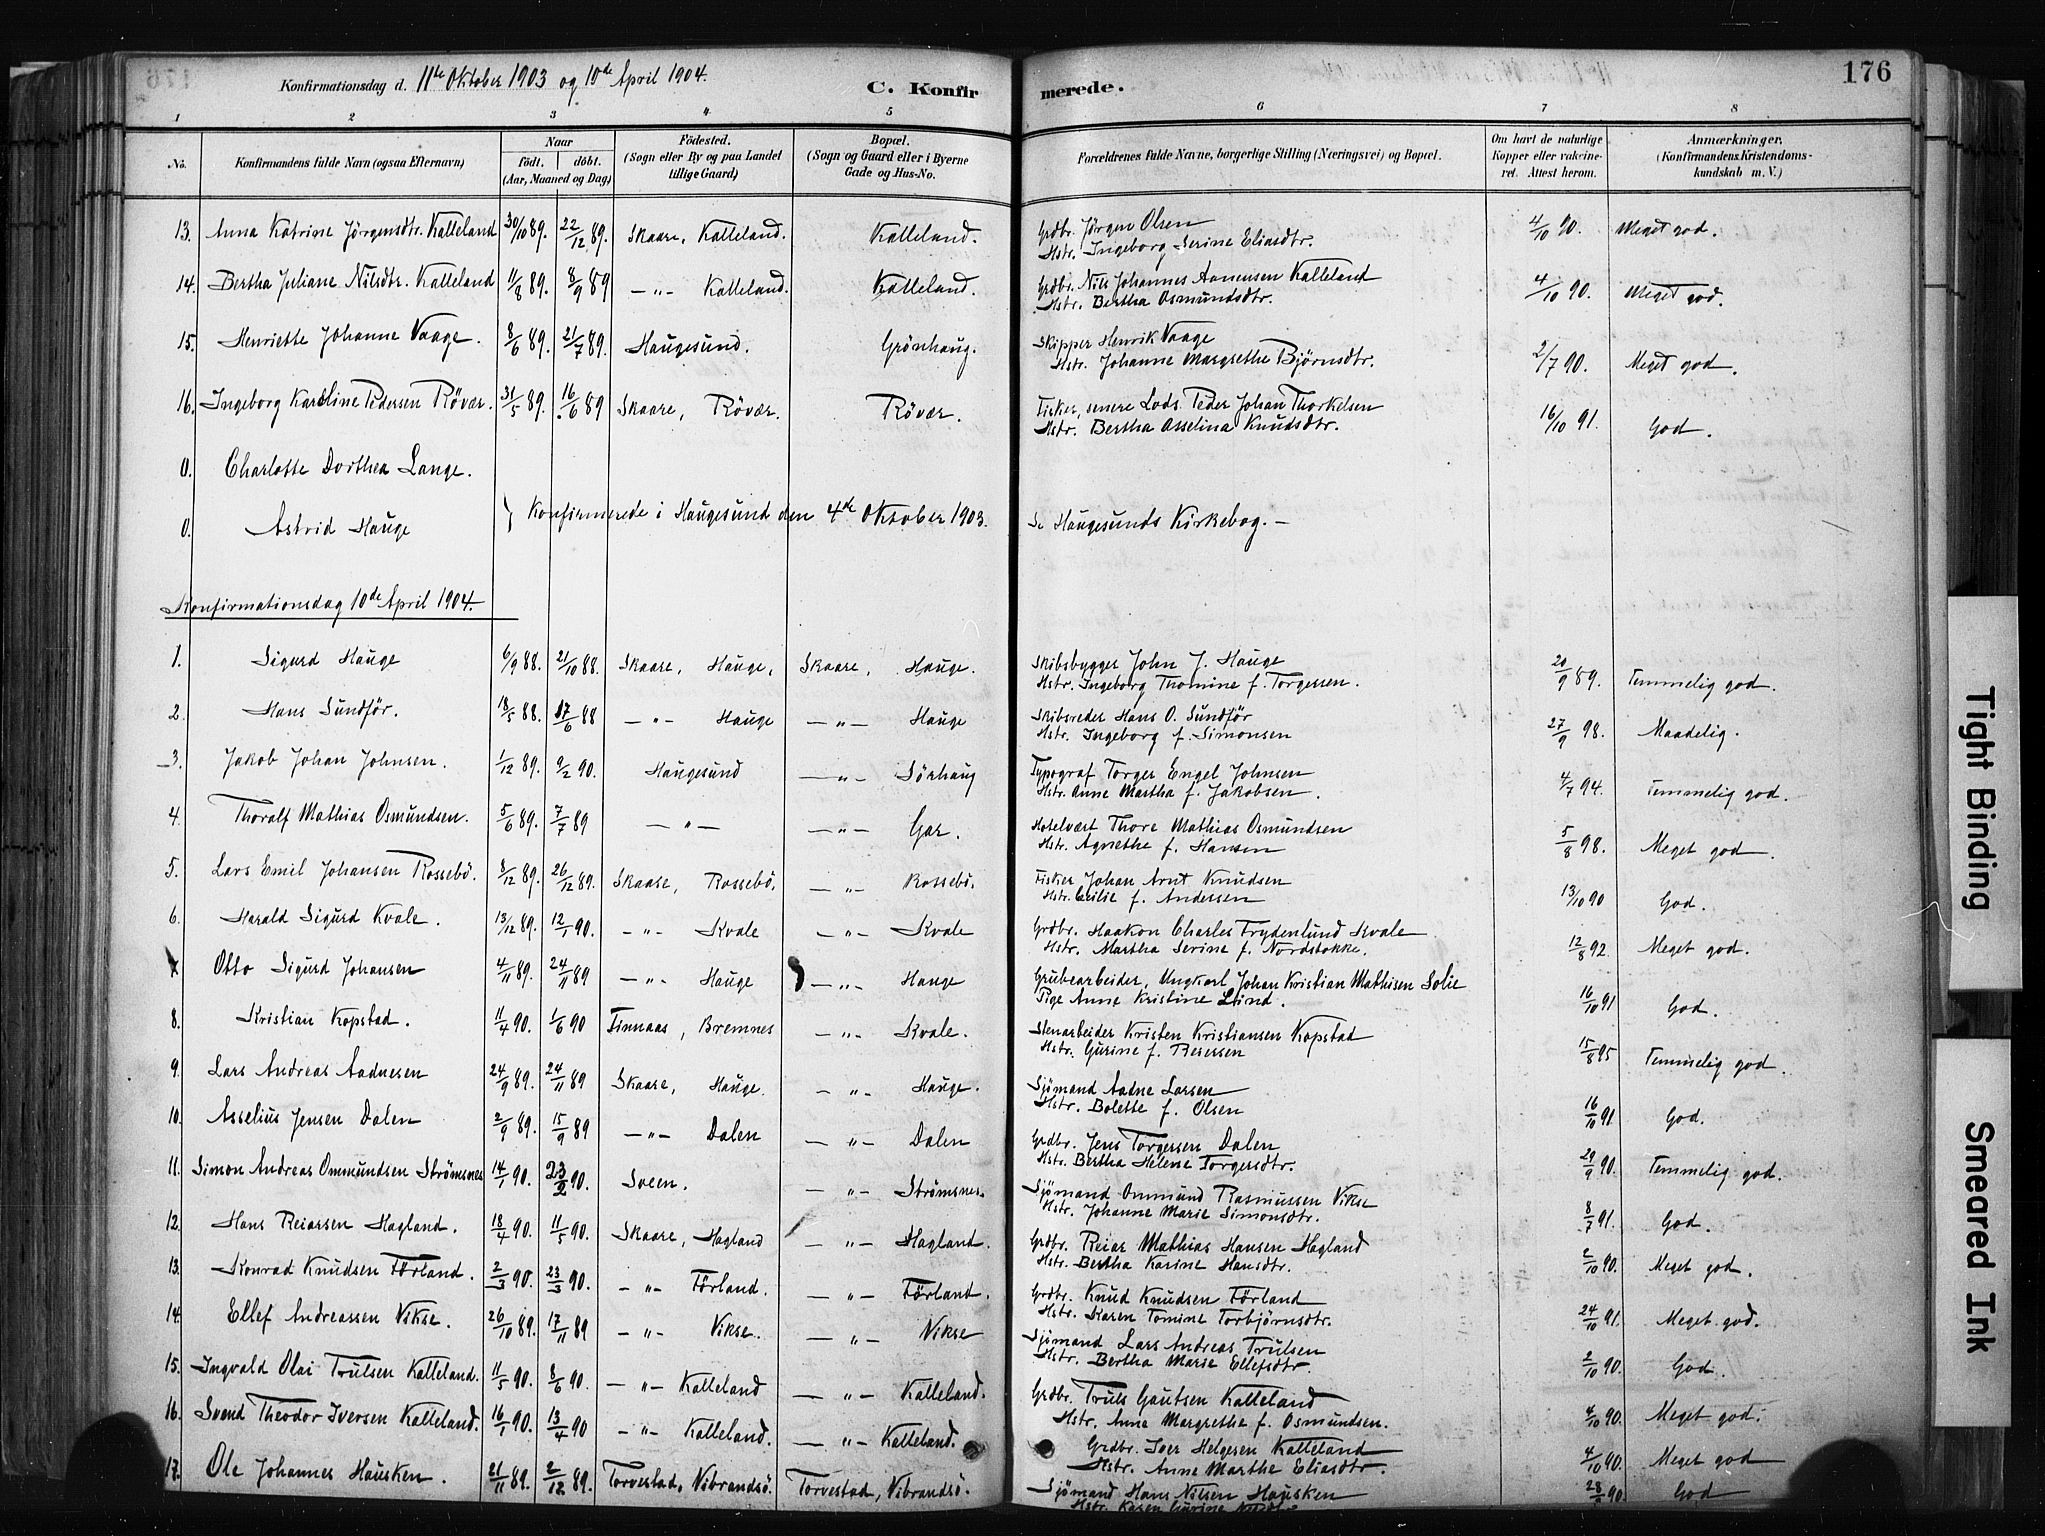 Konfirmationsdag d. 11te Oktober 1903 og 10de April 1904.
C. Konfirmerede.
176
1 2 3 4 5 6 7 8
No. Konfirmandens fulde Navn (ogsaa Efternavn) Naar födt. döbt. (Aar, Maaned og Dag) Födested. (Sogn eller By og paa Landet tillige Gaard) Bopæl. (Sogn og Gaard eller i Byerne Gade og Hus-No. Forældrenes fulde Navne, borgerlige Stilling (Næringsvei) og Bopæl. Om havt de naturlige Kopper eller vakcineret. Attest herom. Anmærkninger. (Konfirmandens Kristendomskundskab m. V.)
13. Anna Katrine Jörgensdtr. Kalleland 30/10 89. 22/12 89. Skaare, Kalleland. Kalleland. Grdbr. Jörgen Olsen 4/10 90. Meget god.
Hstr. Ingeborg Serine Eliasdtr.
14. Bertha Juliane Nilsdtr. Kalleland 11/8 89. 8/9 89 —"— Kalleland. Kalleland. Grdbr. Nils Johannes Aanensen Kalleland 4/10 90. Meget god.
Hstr. Bertha Osmundsdtr.
15. Henriette Johanne Vaage. 8/6 89. 21/7 89. Haugesund. Grönhaug. Skipper Henrik Vaage 2/7 90. Meget god.
Hstr. Johanne Margrethe Bjørnsdtr.
16. Ingeborg Karoline Pedersen Rövær. 31/5 89. 16/6 89 Skaare, Rövær. Rövær. Fisker, senere Lods Peder Johan Thorkelsen 16/10 91. God.
Hstr. Bertha Asselina Knudsdtr.
0. Charlotte Dorthea Lange.
0. Astrid Hauge } Konfirmerede i Haugesund den 4de Oktober 1903. Se Haugesunds Kirkebog. —
Konfirmationsdag 10de April 1904.
1. Sigurd Hauge 6/9 88. 21/10 88. Skaare, Hauge, Skaare, Hauge. Skibsbygger John J. Hauge 20/9 89. Temmelig god.
Hstr. Ingeborg Thomine f. Torgersen.
2. Hans Sundför. 18/5 88. 17/6 88 —"— Hauge —"— Hauge Skibsreder Hans O. Sundför 27/9 98. Maadelig.
Hstr. Ingeborg f. Simonsen
3. Jakob Johan Johnsen. 1/12 89. 9/2 90. Haugesund —"— Sörhaug Typograf Torger Engel Johnsen 4/7 94. Temmelig god.
Hstr. Anne Martha f. Jakobsen.
4. Thoralf Mathias Osmundsen. 5/6 89. 7/7 89 —"— —"— Gar. Hotelvært Thore Mathias Osmundsen 5/8 98. Meget god.
Hstr. Agnethe f. Hansen
5. Lars Emil Johansen Rossebö. 3/12 89. 26/12 89. Skaare, Rossebö. —"— Rossebö. Fisker Johan Arnt Knudsen 13/10 90 God.
Hstr. Cecilie f. Andersen
6. Harald Sigurd Kvale. 13/12 89. 12/1 90. —"— Kvale —"— Kvale Grdbr. Haakon Charles Frydenlund Kvale 12/8 92. Meget god.
Hstr. Martha Serine f. Nordstokke.
7 Otto Sigurd Johansen 4/11 89. 24/11 89 —"— Hauge —"— Hauge Grubearbeider, Ungkarl Johan Kristian Mathisen Solie 16/10 91 God.
Pige Anne Kristine Lund.
8. Kristian Kopstad. 11/4 90. 1/6 90 Finnaas, Bremnes —"— Kvale. Stenarbeider Kristen Kristiansen Kopstad 15/8 95 Temmelig god.
Hstr. Gurine f. Reiersen
9. Lars Andreas Aadnesen 24/9 89. 24/11 89 Skaare, Hauge. —"— Hauge. Sjömand Aadne Larsen 16/10 91. God.
Hstr. Bolette f. Olsen
10. Asselius Jensen Dalen 2/9 89. 15/9 89 —"— Dalen —"— Dalen Grdbr. Jens Torgersen Dalen 29/9 90. Temmelig god.
Hstr. Bertha Helene Torgersdtr.
11. Simon Andreas Ommundsen Strömsnes 14/1 90. 23/2 90. Sveen. —"— Strömsnes. Sjömand Ommund Rasmussen Vikse 8/7 91. God.
Hstr. Johanne Marie Simonsdtr.
12. Hans Reiarsen Hagland. 18/4 90. 11/5 90. Skaare, Hagland —"— Hagland. Grdbr. Reiar Mathias Hansen Hagland 2/10 90. Meget god.
Hstr. Bertha Karine Hansdtr.
13. Konrad Knudsen Förland. 2/3 90. 23/3 90. —"— Förland. —"— Förland. Grdbr. Knud Knudsen Förland 24/10 91. Meget god.
Hstr. Karen Tomine Torbjörnsdtr.
14. Ellef Andreassen Vikse. 26/10 89. 17/11 89 —"— Vikse. —"— Vikse Sjömand Lars Andreas Trulsen 2/10 90. God.
Hstr. Bertha Marie Ellefsdtr.
15. Ingvald Olai Trulsen Kalleland. 11/5 90. 8/6 90. —"— Kalleland —"— Kalleland. Grdbr. Truls Gautsen Kalleland 4/10 90. Meget god.
Hstr. Anna Margrethe f. Osmundsen.
16. Svend Theodor Iversen Kalleland. 16/1 90. 13/4 90 —"— Kalleland. —"— Kalleland. Grdbr. Iver Helgesen Kalleland 4/10 90. Meget god
Hstr. Anne Marthe Eliasdtr.
17. Ole Johannes Hausken. 21/11 89. 2/12 89. Torvestad, Vibrandsö. Torvestad, Vibrandsö. Sjömand Hans Nilsen Hausken 90. God
Hstr. Karen Gurine
Tight Binding
Smeared Ink